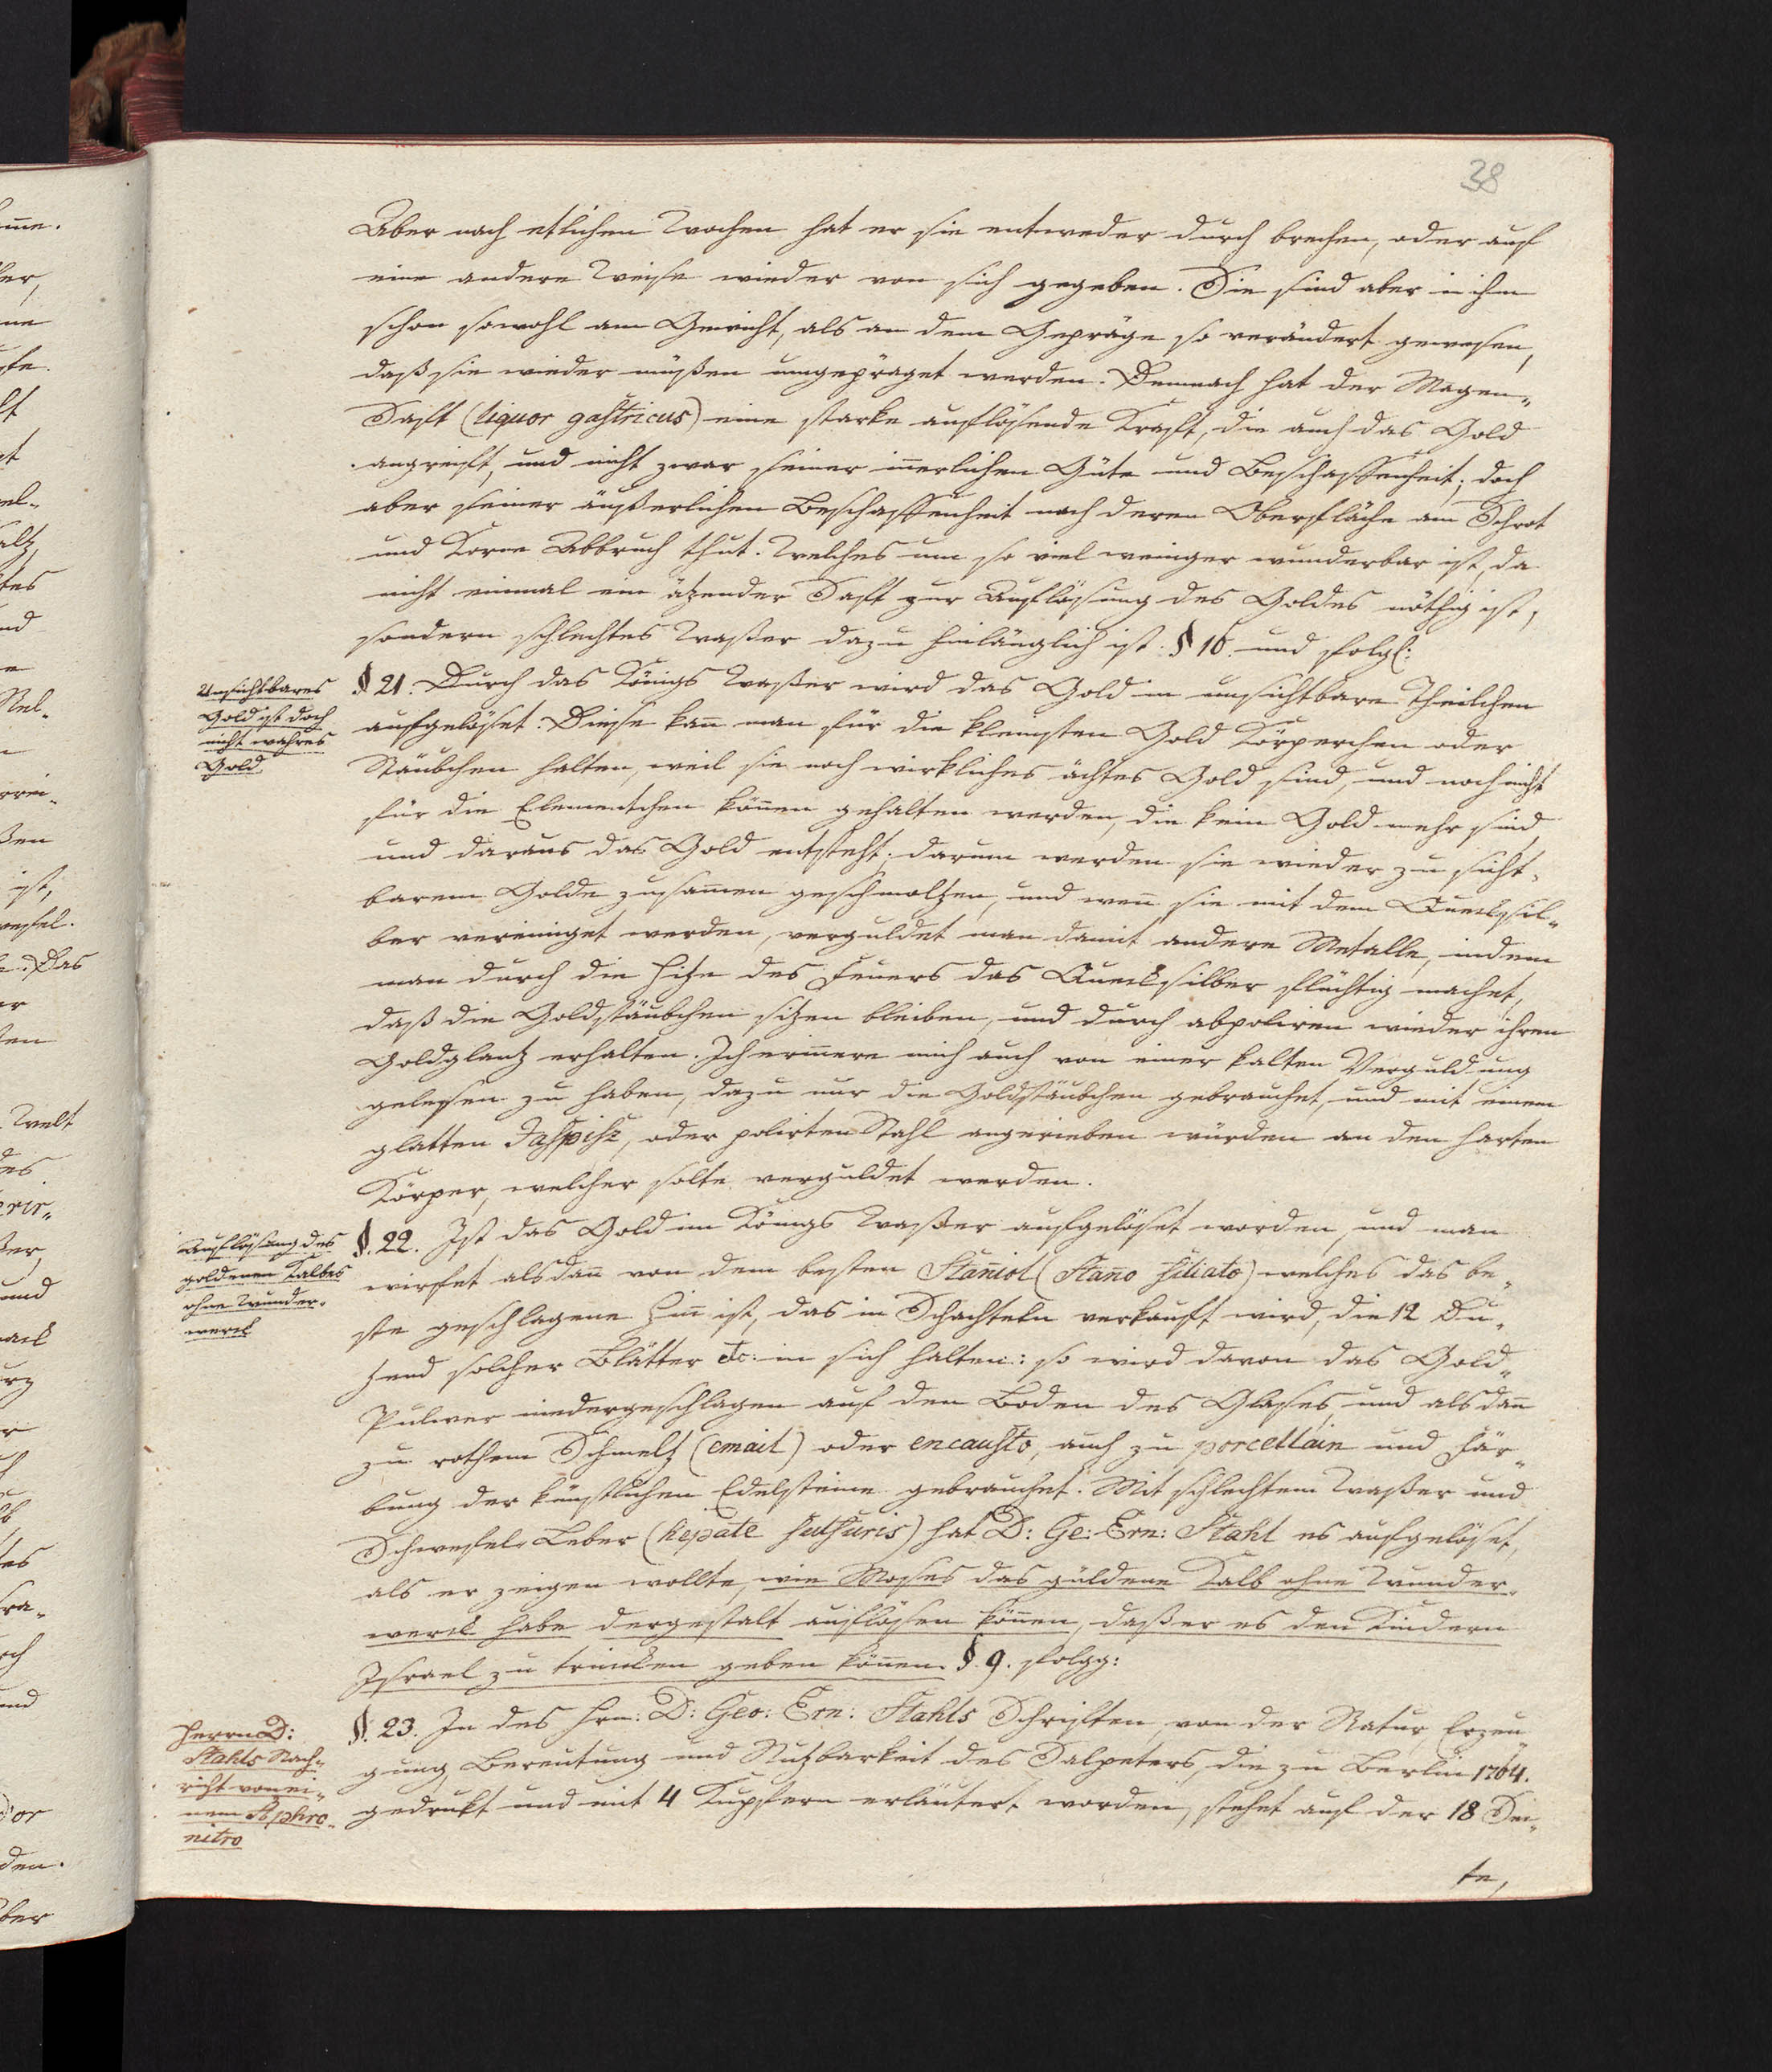 38
Aber nach etlichen Wochen hat er sie entweder durch brechen, oder auf
eine andere Weise wieder von sich gegeben. Sie sind aber in ihm
schon sowohl am Gewicht, als an dem Gepräge so verändert gewesen,
daß sie wieder müßen umgepräget werden. Demnach hat der Magen-
Safft (liquor gastricus) eine starke auflösende Krafft, die auch das Gold
angreifft, und nicht zwar seiner innerlichen Güte und Beschaffenheit; doch
aber seiner äußerlichen Beschaffenheit nach deren Oberfläche am Schrot
und Korne Abbruch thut. Welches um so viel weniger wunderbar ist, da
nicht einmal ein äzender Safft zur Auflösung des Goldes nöthig ist,
sondern schlechtes Waßer dazu hinlänglich ist. § 16. und folg:
Unsichtbares
Gold ist doch
nicht wahres
Gold.
§ 21. Durch das Königs Waßer wird das Gold in unsichtbare Theilchen
aufgelöset. Diese kan̄ man für die kleinsten Gold Körperchen oder
Stäubchen halten, weil sie noch wirkliches ächtes Gold sind, und noch nicht
für die Elementchen kön̄en gehalten werden, die kein Gold mehr sind,
und daraus das Gold entsteht; darum werden sie wieder zu sicht-
barem Golde zusam̄en geschmoltzen, und wen̄ sie mit dem Quecksil-
ber vereiniget werden, verguldet man damit andere Metalle, indem
man durch die Hize des Feuers das Quecksilber flüchtig machet,
daß die Goldstäubchen sizen bleiben, und durch abpoliren wieder ihren
Goldglantz erhalten. Ich erin̄ere mich auch von einer kalten Verguldung
gelesen zu haben, dazu nur die Goldstäubchen gebrauchet, und mit einem
glatten Jaspisz, oder polirten Stahl angerieben würden an den harten
Körper, welcher solte verguldet werden.
Auflösung des
goldenen Kalbes
ohne Wunder-
werck
§. 22. Ist das Gold im Königs Waßer aufgelöset worden, und man
wirfet alsdan̄ von dem besten Stan̄iol (Stan̄o filiato) welches das be-
ste geschlagene Zin̄ ist, das in Schachteln verkaufft wird, die 12 Du-
zend solcher Blätter etc: in sich halten: so wird davon das Gold-
Pulver niedergeschlagen auf den Boden des Glases, und alsdan̄
zu rothem Schmeltz (email) oder encausto, auch zu porcellain und Fär-
bung der künstlichen Edelsteine gebrauchet. Mit schlechtem Waßer und
Schwefel-Leber (hepate sulfuris) hat D: Ge: Ern: Stahl es aufgelöset,
als er zeigen wollte, wie Moses das güldene Kalb ohne Wunder-
werck habe dergestalt auflösen kön̄en, daß er es den Kindern
Israel zu trincken geben kön̄en. §. 9. folgg:
Herrn D:
Stahls Nach-
richt von ei-
nem Aphro-
nitro
§. 23. In des Hrn: D: Geo: Ern: Stahls Schrifften, von der Natur, Erzeu-
gung, Bereutung und Nutzbarkeit des Salpeters, die zu Berlin 1764.
gedrukt und mit 4 Kupfern erläutert worden, stehet auf der 18 Sei-
te,